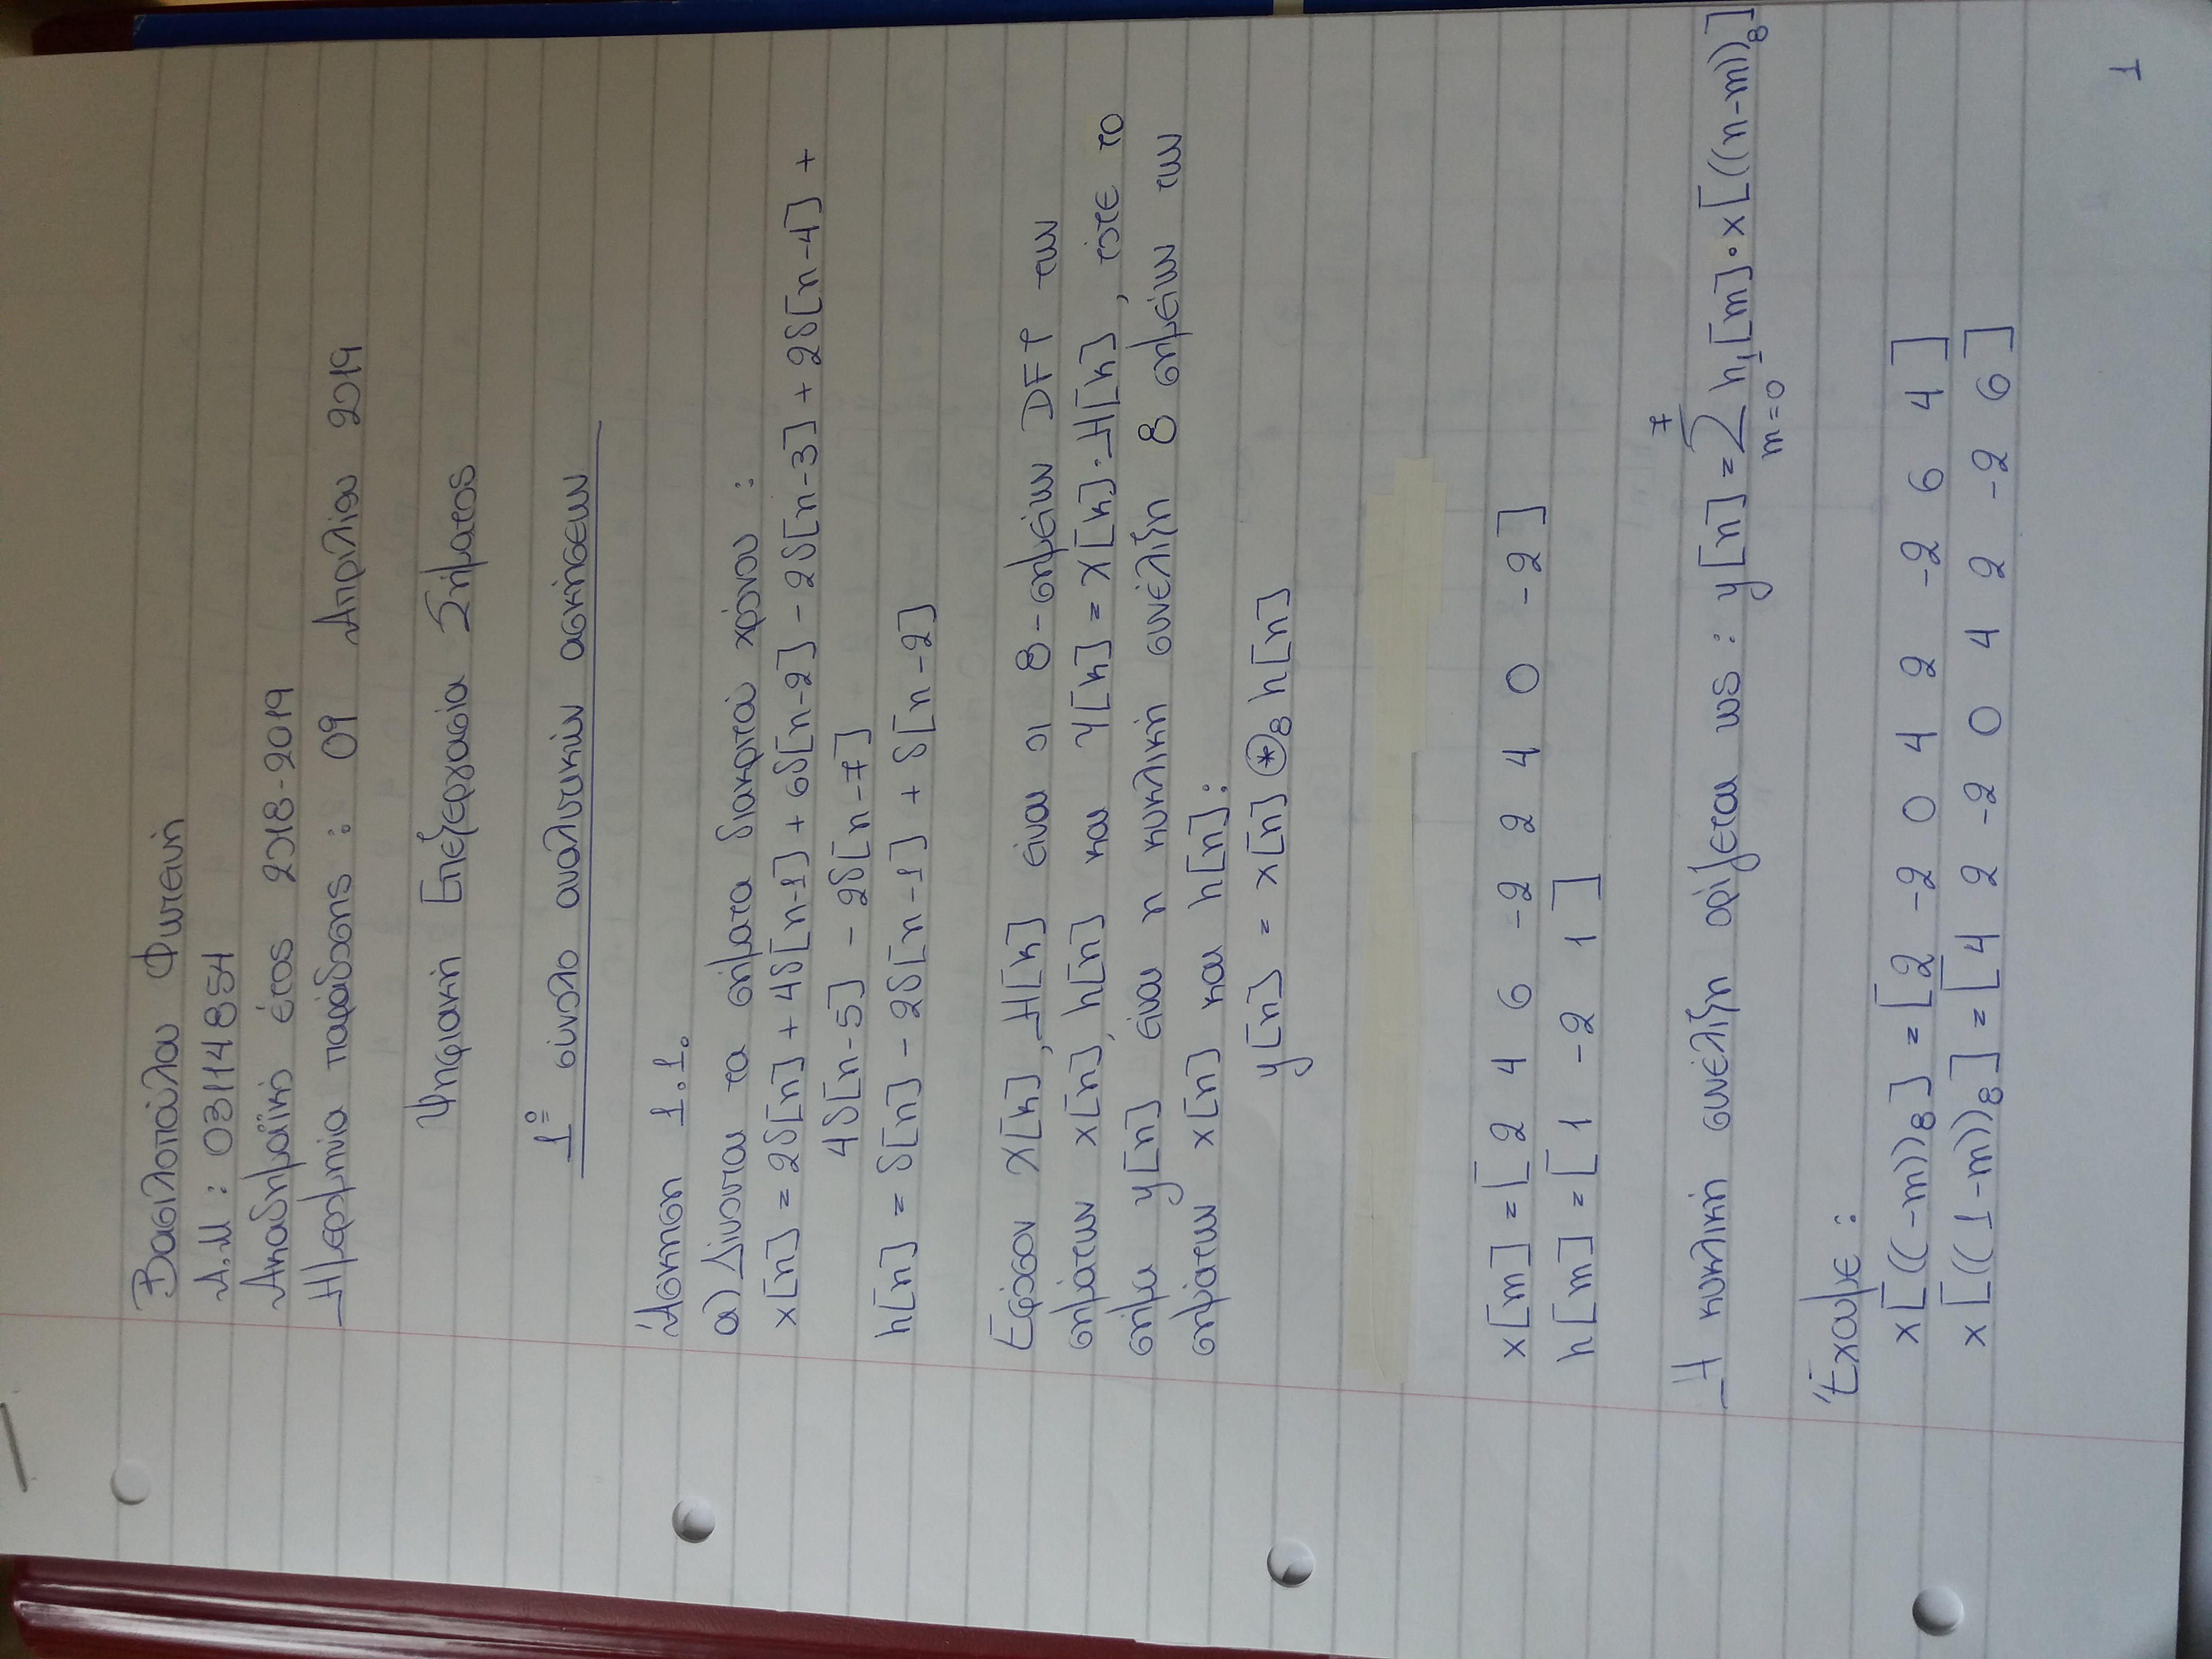 Βασιλοπούλου Φωτεινή
Α.Μ : 03114854
Ακαδημαϊκό έτος 2018-2019
Ημερομηνία παράδοσης : 09 Απριλίου 2019
Ψηφιακή Επεξεργασία Σήματος
1º σύνολο αναλυτικών ασκήσεων
Άσκηση 1.1.
α) Δίνονται τα σήματα διακριτού χρόνου :
x[n] = 2δ[n] + 4δ[n-1] + 6δ[n-2] - 2δ[n-3] + 2δ[n-4] +
4δ[n-5] - 2δ[n-7]
h[n] = δ[n] - 2δ[n-1] + δ[n-2]
Εφόσον X[k], H[k] είναι οι 8-σημείων DFT των
σημάτων x[n], h[n] και Y[k] = X[k]·H[k], τότε το
σήμα y[n] είναι η κυκλική συνέλιξη 8 σημείων των
σημάτων x[n] και h[n]:
y[n] = x[n] ⊛₈ h[n]
x[m] = [ 2 4 6 -2 2 4 0 -2 ]
h[m] = [ 1 -2 1 ]
Η κυκλική συνέλιξη ορίζεται ως : y[n] = Σ_{m=0}^{7} h₁[m]·x[((n-m))₈]
Έχουμε :
x[((-m))₈] = [2 -2 0 4 2 -2 6 4 ]
x[((1-m))₈] = [4 2 -2 0 4 2 -2 6 ]
1